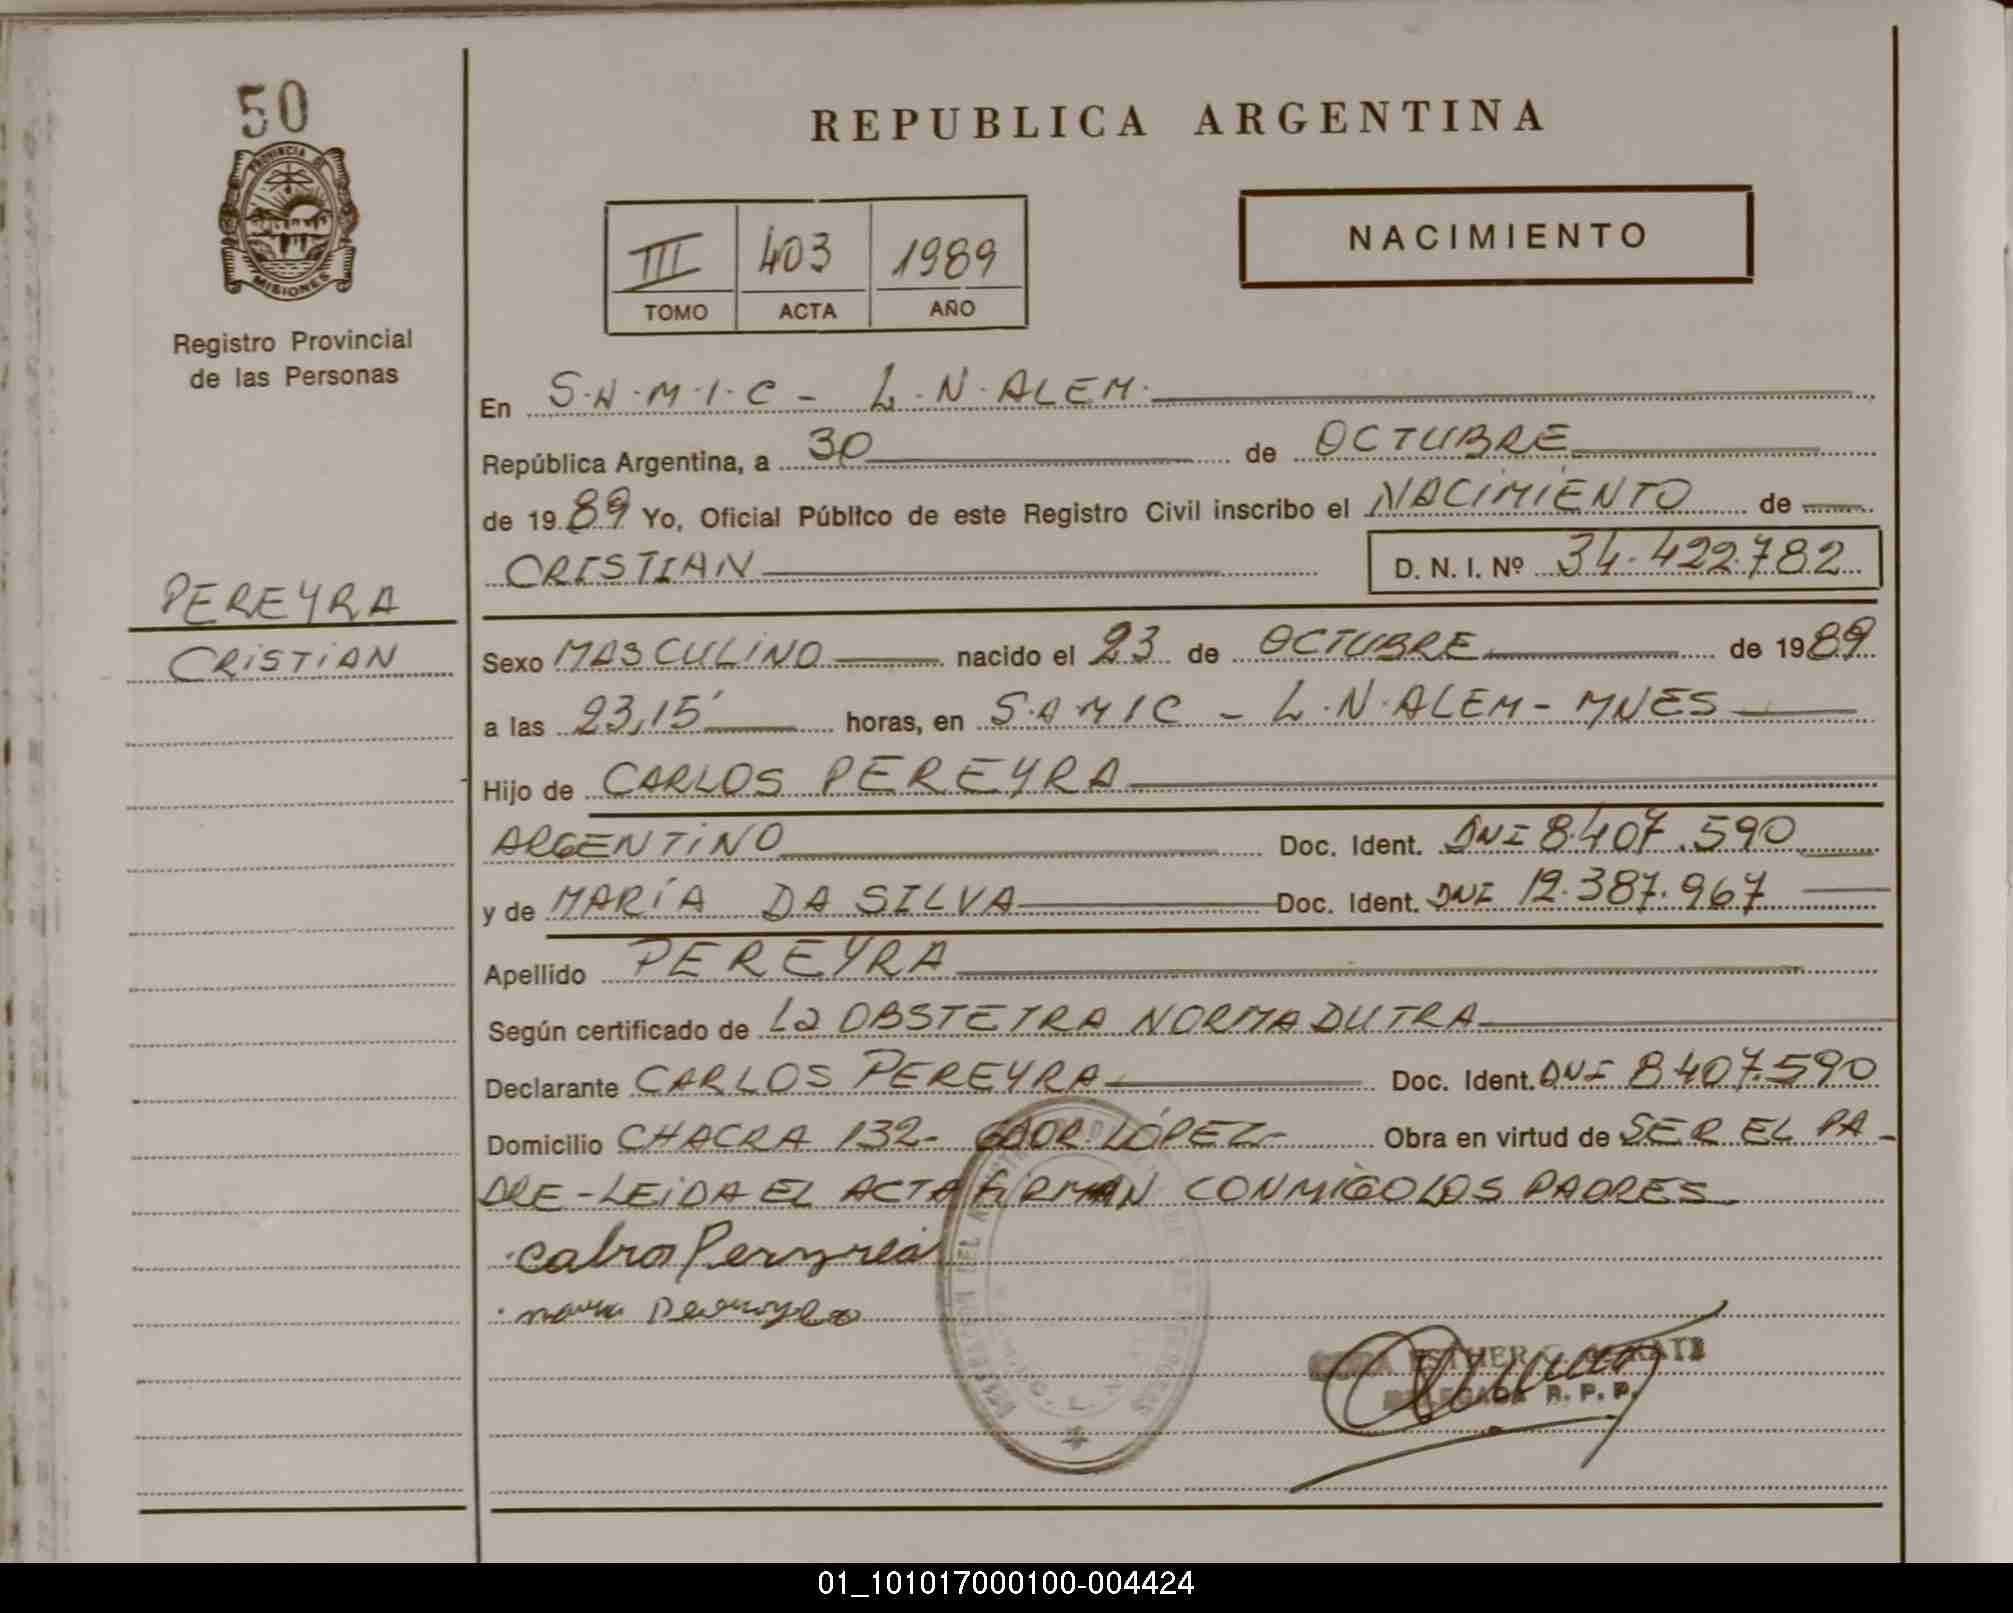 50
PROVINCIA DE
MISIONES
Registro Provincial
de las Personas
PEREYRA
CRISTIAN
REPUBLICA ARGENTINA
III 403 1989
TOMO ACTA AÑO
NACIMIENTO
En S.A.M.I.C - L.N.ALEM.
República Argentina, a 30 de OCTUBRE
de 1989 Yo, Oficial Público de este Registro Civil inscribo el NACIMIENTO de
CRISTIAN D.N.I. Nº 34.422.782
Sexo MASCULINO nacido el 23 de OCTUBRE de 1989
a las 23,15' horas, en S.A.M.I.C - L.N.ALEM - MNES
Hijo de CARLOS PEREYRA
ARGENTINO Doc. Ident. DNI 8.407.590
y de MARÍA DA SILVA Doc. Ident. DNI 12.387.967
Apellido PEREYRA
Según certificado de La OBSTETRA NORMA DUTRA
Declarante CARLOS PEREYRA Doc. Ident. DNI 8407.590
Domicilio CHACRA 132- GDOR LÓPEZ- Obra en virtud de SER EL PA-
DRE - LEIDA EL ACTA FIRMAN CONMIGO LOS PADRES
ESTHER
DELEGADA R.P.P.
01_101017000100-004424